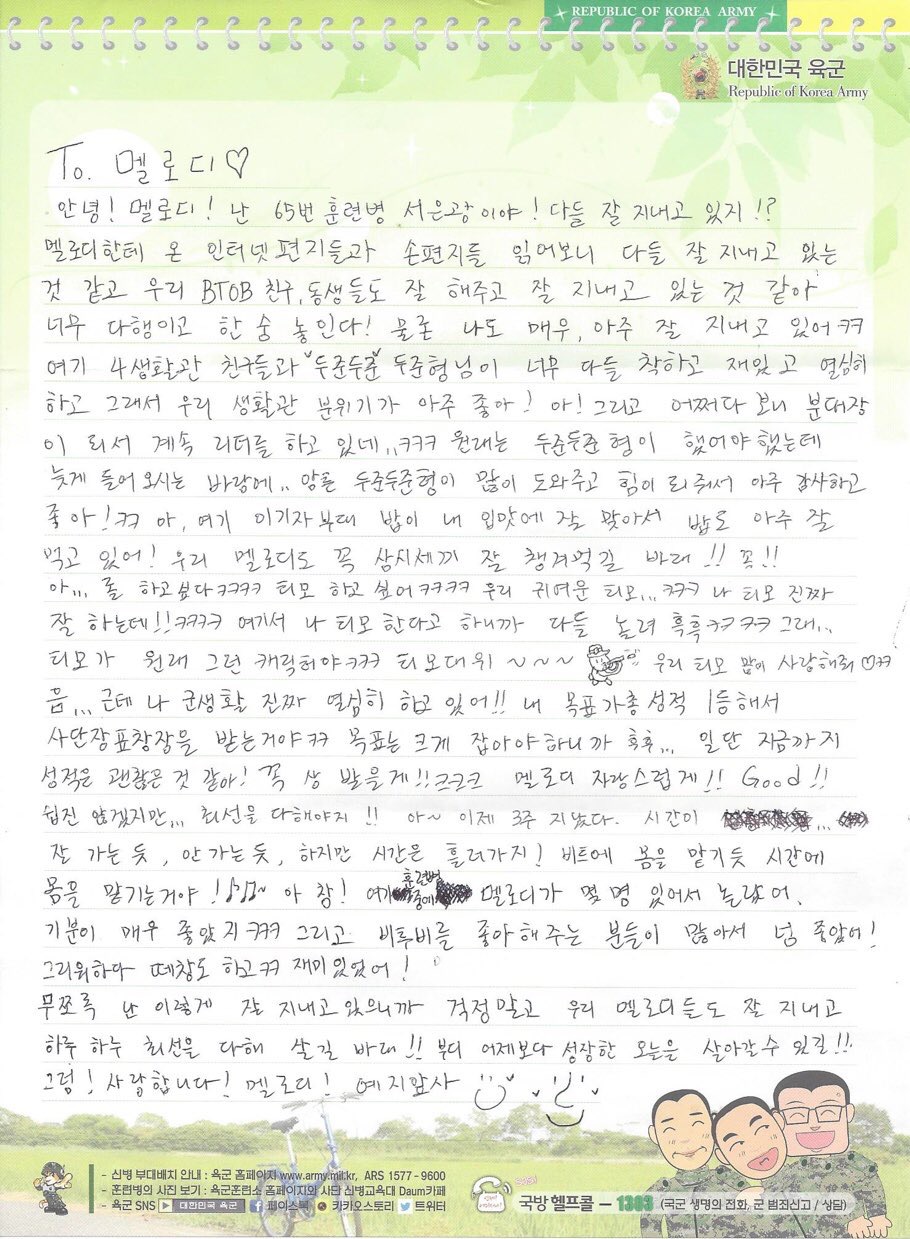 REPUBLIC OF KOREA ARMY
대한민국 육군
Republic of Korea Army
To. 멜로디♡
안녕! 멜로디! 난 65번 훈련병 서은광이야! 다들 잘 지내고 있지!?
멜로디한테 온 인터넷편지들과 손편지들 읽어보니 다들 잘 지내고 있는
것 같고 우리 BTOB 친구, 동생들도 잘 해주고 잘 지내고 있는 것 같아
너무 다행이고 한 숨 놓인다! 물론 나도 매우, 아주 잘 지내고 있어ㅋㅋ
여기 4생활관 친구들과 "두준두준" 두준형님이 너무 다들 착하고 재밌고 열심히
하고 그래서 우리 생활관 분위기가 아주 좋아! 아! 그리고 어쩌다 보니 분대장
이 되서 계속 리더를 하고 있네..ㅋㅋㅋ 원래는 두준두준형이 했어야 했는데
늦게 들어오시는 바람에.. 암튼 두준두준형이 많이 도와주고 힘이 되줘서 아주 감사하고
좋아!ㅋㅋ 아, 여기 이기자부대 밥이 내 입맛에 잘 맞아서 밥도 아주 잘
먹고 있어! 우리 멜로디도 꼭 삼시세끼 잘 챙겨먹길 바래!! 꼭!!
아... 롤 하고싶다ㅋㅋㅋㅋ 티모 하고 싶어ㅋㅋㅋㅋ 우리 귀여운 티모...ㅋㅋㅋ 나 티모 진짜
잘 하는데!!ㅋㅋㅋㅋ 여기서 나 티모한다고 하니까 다들 놀려 흑흑ㅋㅋㅋㅋ 그래..
티모가 원래 그런 캐릭터야ㅋㅋㅋ 티모대위 ~~~ 우리 티모 많이 사랑해줘♡ㅋㅋ
음... 근데 나 군생활 진짜 열심히 하고 있어!! 내 목표가 총 성적 1등해서
사단장표창장을 받는거야ㅋㅋ 목표는 크게 잡아야하니까 흑흑... 일단 지금까지
성적은 괜찮은 것 같아! 꼭 상 받을게!!ㅋㅋㅋ 멜로디 자랑스럽게!! Good!!
쉽진 않겠지만... 최선을 다해야지!! 아~ 이제 3주 지났다. 시간이 ...
잘 가는 듯, 안 가는 듯, 하지만 시간은 흘러가지! 비트에 몸을 맡기듯 시간에
몸을 맡기는거야!♪♪~ 아 참! 여기 훈련병 중에 멜로디가 몇 명 있어서 놀랐어.
기분이 매우 좋았지ㅋㅋㅋ 그리고 비투비를 좋아해주는 분들이 많아서 넘 좋았어!
그리워하다 떼창도 하고ㅋㅋ 재미있었어!
무쪼록 난 이렇게 잘 지내고있으니까 걱정말고 우리 멜로디들도 잘 지내고
하루 하루 최선을 다해 살길 바래!! 부디 어제보다 성장한 오늘을 살아갈수 있길!!
그럼! 사랑합니다! 멜로디! 예지앞사
- 신병 부대배치 안내 : 육군 홈페이지 www.army.mil.kr, ARS 1577-9600
- 훈련병의 사진 보기 : 육군훈련소 홈페이지와 사단 신병교육대 Daum카페
- 육군 SNS 대한민국 육군 페이스북 카카오스토리 트위터
국방헬프콜 - 1303 (국군 생명의 전화, 군 범죄신고 / 상담)